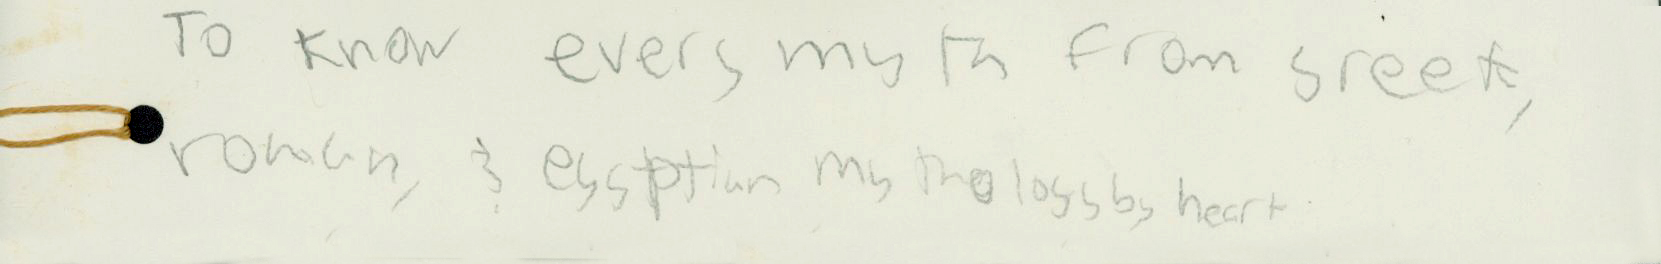 To know every myth from greek,
roman, & egyptian mythology by heart